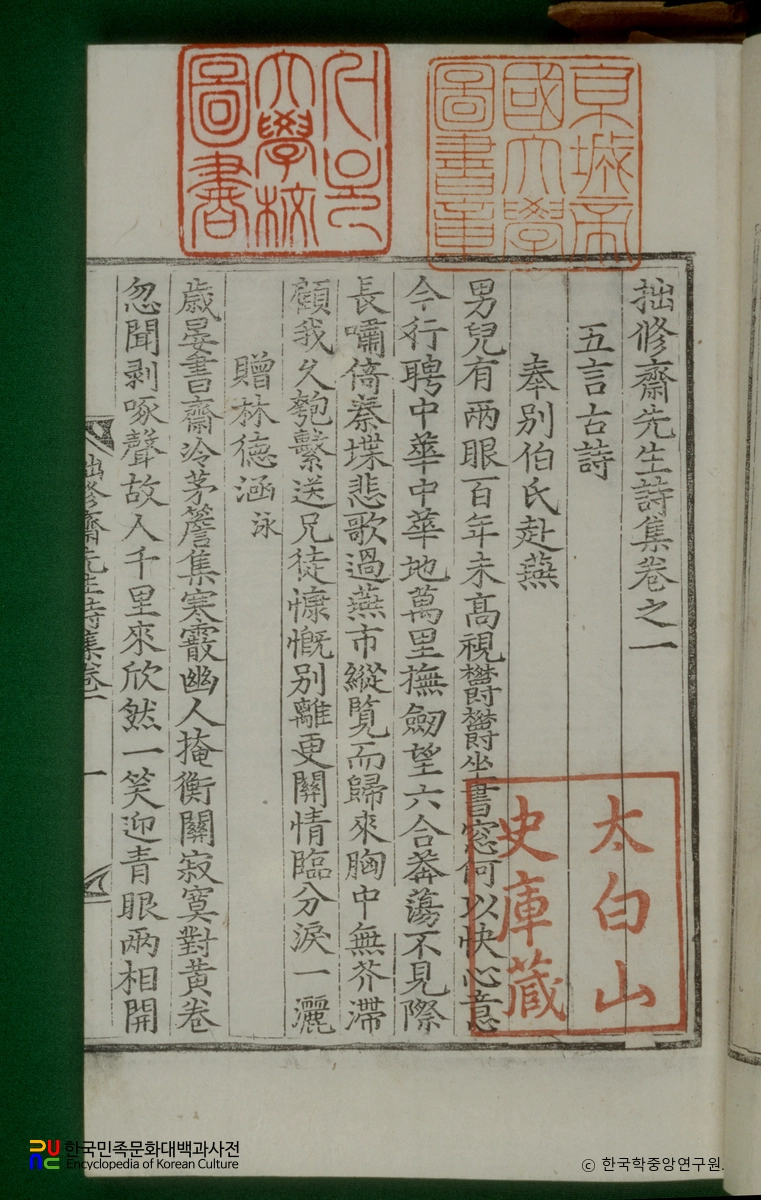 京城帝
國大學
圖書章
서울
大學校
圖書
拙修齋先生詩集卷之一
五言古詩
奉別伯氏赴燕
男兒有兩眼百年未高視欝欝坐書窓何以快心意
今行聘中華中華地萬里撫劒望六合莽蕩不見際
長嘯倚秦堞悲歌過燕市縱覽而歸來胸中無芥滯
顧我久匏繫送兄徒慷慨別離更關情臨分淚一灑
贈林德涵泳
歲晏書齋冷茅簷集寒霰幽人掩衡關寂寞對黃卷
忽聞剥啄聲故人千里來欣然一笑迎青眼兩相開
拙修齋先生詩集卷一
一
太白山
史庫藏
한국민족문화대백과사전
Encyclopedia of Korean Culture
© 한국학중앙연구원.